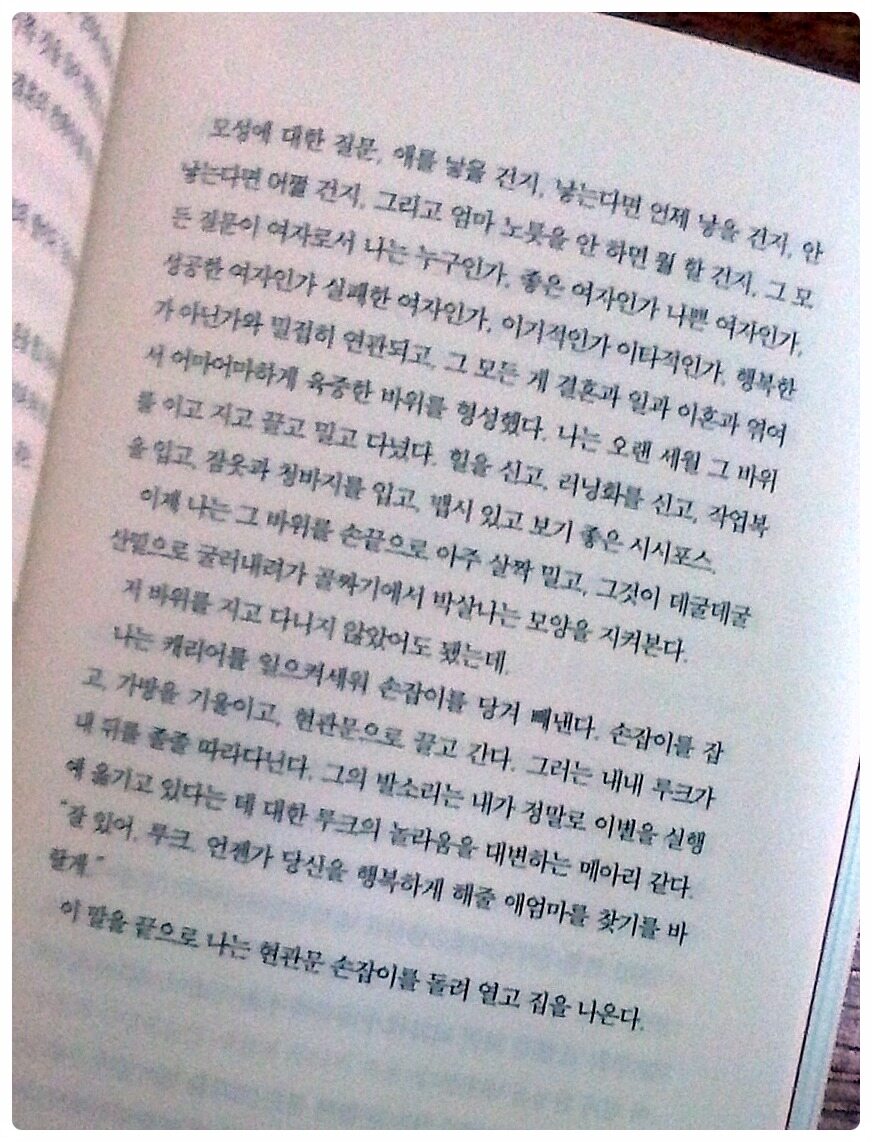 모성에 대한 질문, 애를 낳을 건지, 낳는다면 언제 낳을 건지, 안
낳는다면 어쩔 건지, 그리고 엄마 노릇을 안 하면 뭘 할 건지, 그 모
든 질문이 여자로서 나는 누구인가, 좋은 여자인가 나쁜 여자인가,
성공한 여자인가 실패한 여자인가, 이기적인가 이타적인가, 행복한
가 아닌가와 밀접히 연관되고, 그 모든 게 결혼과 일과 이혼과 엮여
서 어마어마하게 육중한 바위를 형성했다. 나는 오랜 세월 그 바위
를 이고 지고 끌고 밀고 다녔다. 힐을 신고, 러닝화를 신고, 작업복
을 입고, 잠옷과 청바지를 입고, 맵시 있고 보기 좋은 시시포스.
이제 나는 그 바위를 손끝으로 아주 살짝 밀고, 그것이 데굴데굴
산밑으로 굴러내려가 골짜기에서 박살나는 모양을 지켜본다.
저 바위를 지고 다니지 않았어도 됐는데.
나는 캐리어를 일으켜세워 손잡이를 당겨 빼낸다. 손잡이를 잡
고, 가방을 기울이고, 현관문으로 끌고 간다. 그러는 내내 루크가
내 뒤를 졸졸 따라다닌다. 그의 발소리는 내가 정말로 이별을 실행
에 옮기고 있다는 데 대한 루크의 놀라움을 대변하는 메아리 같다.
"잘 있어, 루크. 언젠가 당신을 행복하게 해줄 애엄마를 찾기를 바
랄게."
이 말을 끝으로 나는 현관문 손잡이를 돌려 열고 집을 나온다.